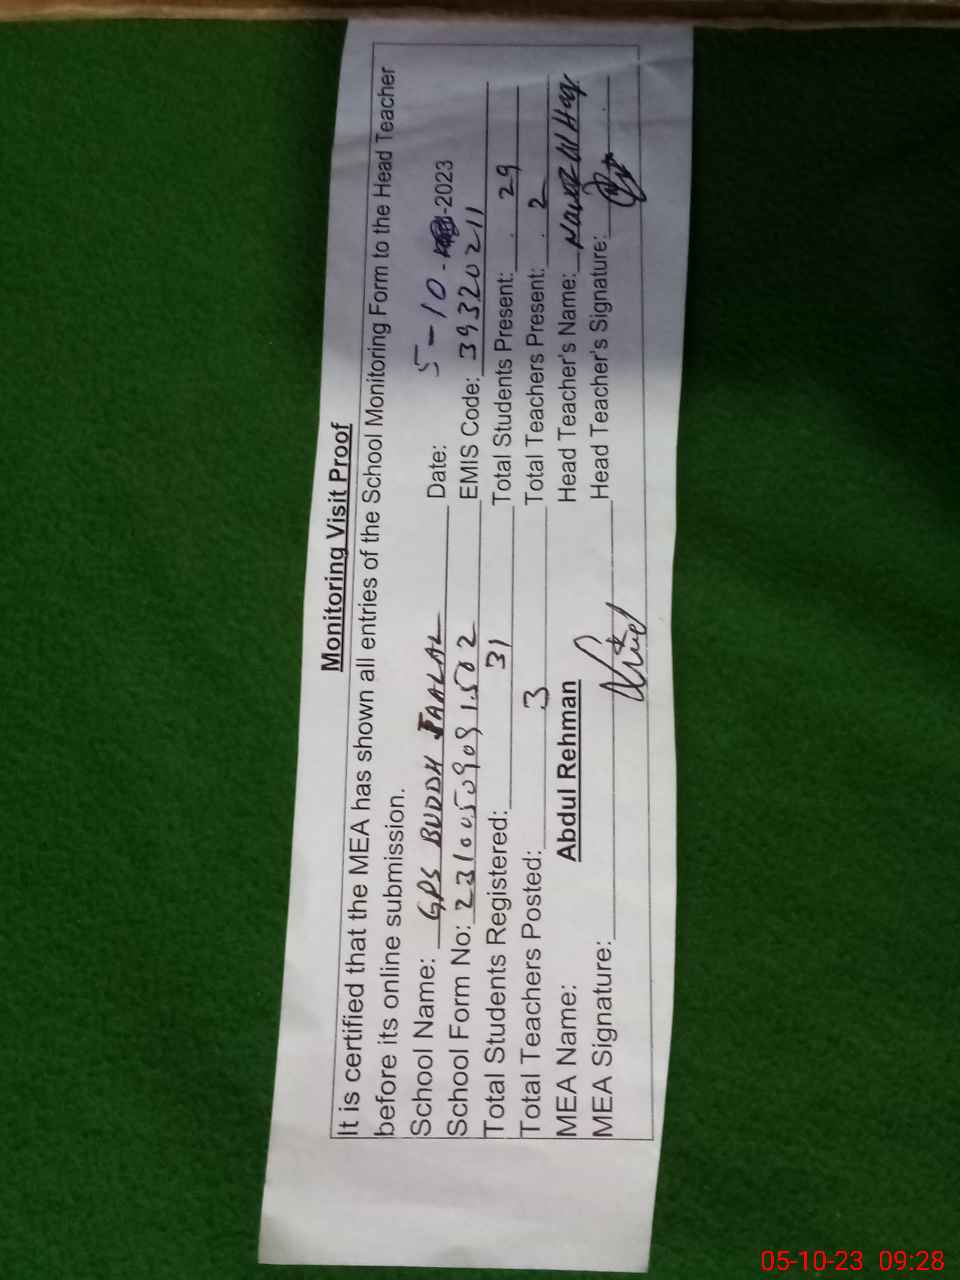 Monitoring Visit Proof
It is certified that the MEA has shown all entries of the School Monitoring Form to the Head Teacher
before its online submission.
School Name: GPS BUDDH JAALAL Date: 5-10- -2023
School Form No: EMIS Code: 39320211
Total Students Registered: 31 Total Students Present: 29
Total Teachers Posted: 3 Total Teachers Present: 2
MEA Name: Abdul Rehman Head Teacher's Name: Nawaz Ul Haq
MEA Signature: Head Teacher's Signature:
05-10-23 09:28